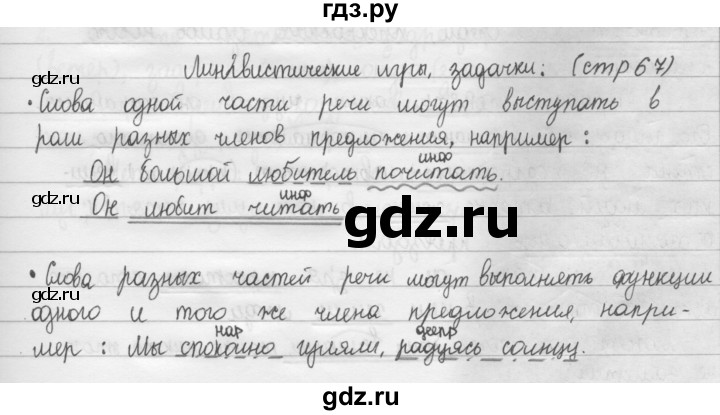 гдз.ру
Лингвистические игры, задачки: (стр 67)
gdz.ru gdz.ru
• Слова одной части речи могут выступать в
роли разных членов предложения, например:
инф
Он большой любитель почитать.
gdz.ru gdz.ru
инф
Он любит читать
gdz.ru
• Слова разных частей речи могут выполнять функции
одного и того же члена предложения, напри-
gdz.ru gdz.ru
нар деепр
мер: Мы спокойно гуляли, радуясь солнцу.
gdz.ru